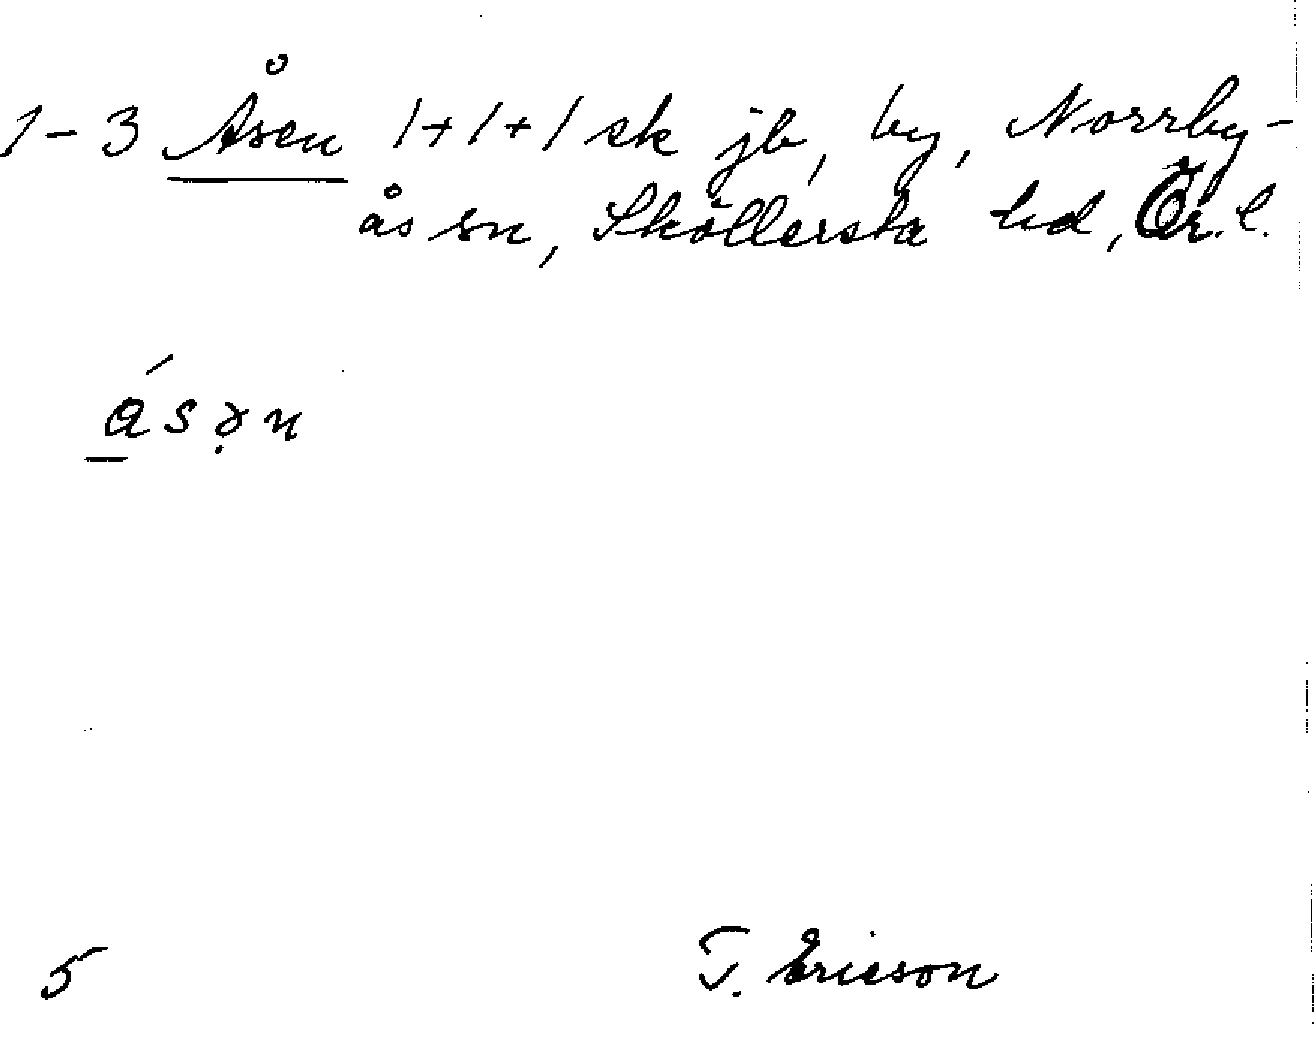 1-3 Åsen 1+1+1 sk jb, by, Norrby-
ås sn, Sköllersta hd, Ör. l.
ásə̣n
5
T. Ericson